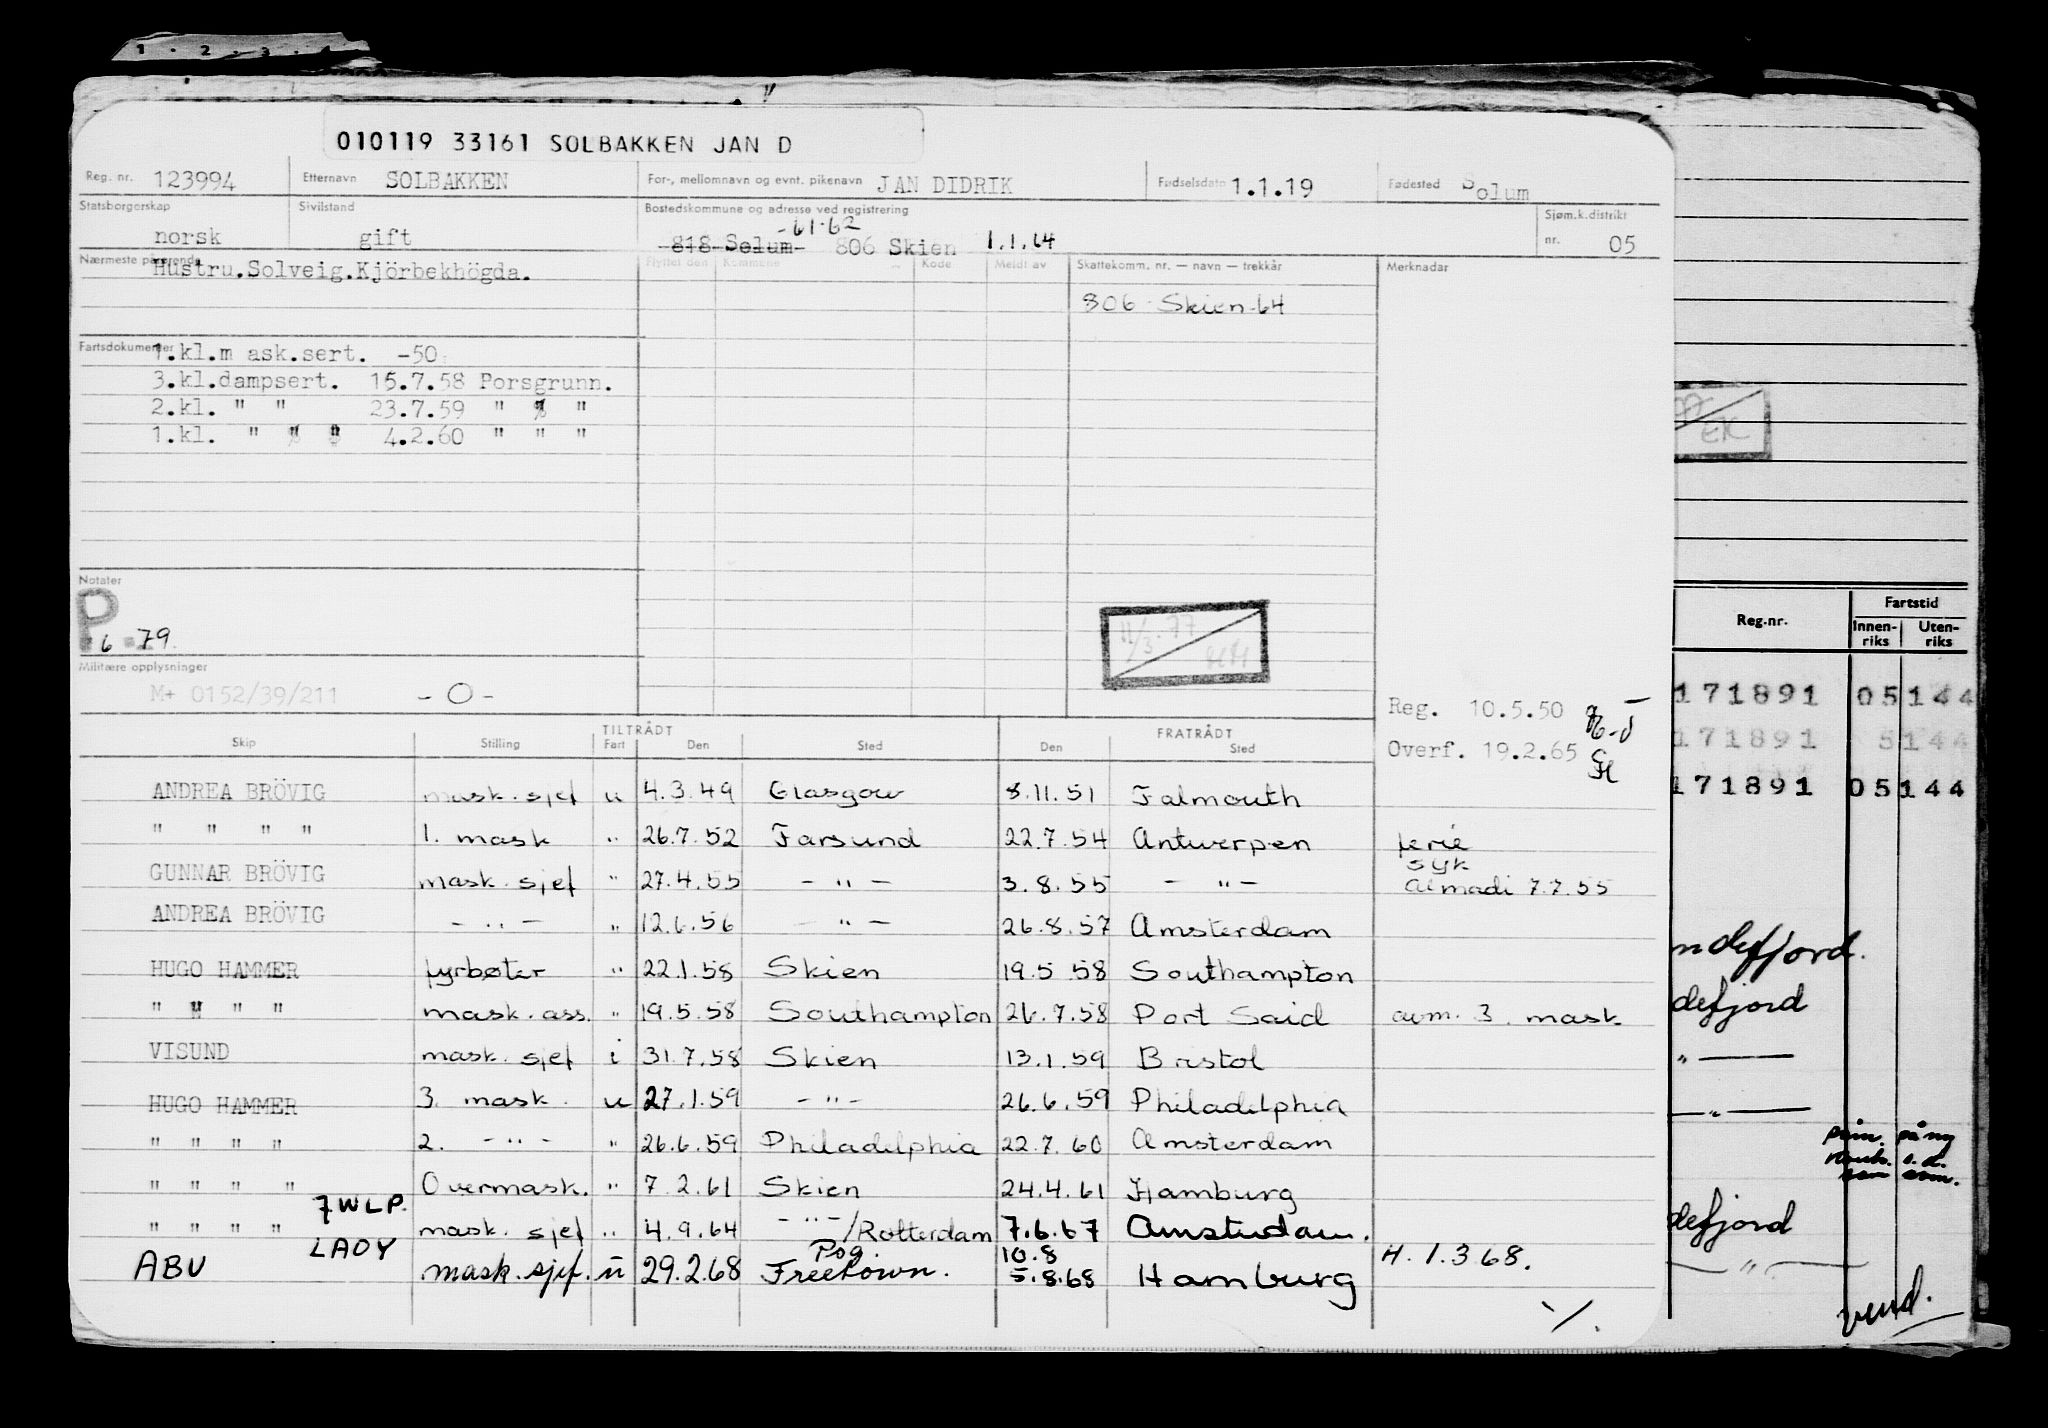 010119 33161 SOLBAKKEN JAN D
Reg. nr. 123994 Etternavn SOLBAKKEN For-, mellomnavn og evnt. pikenavn JAN DIDRIK Fødselsdato 1.1.19 Fødested Solum
Statsborgerskap norsk Sivilstand gift Bostedskommune og adresse ved registrering 818 Solum -61-62 806 Skien 1.1.64 Sjøm.k.distrikt nr. 05
Nærmeste pårørende Hustru.Solveig.Kjörbekhögda.
Flyttet den Kommune Kode Meldt av Skattekomm. nr. — navn — trekkår Merknadar
806 Skien 64
Fartsdokumenter 1.kl.m ask.sert. -50
3.kl.dampsert. 15.7.58 Porsgrunn.
2.kl. " " 23.7.59 " " "
1.kl. " " " 4.2.60 " " "
Notater
P
6 79.
11/3.77
Militære opplysninger
M+ 0152/39/211 -0-
Reg. 10.5.50
Overf. 19.2.65
TILTRÅDT FRATRÅDT
Skip Stilling Fart Den Sted Den Sted
ANDREA BRÖVIG mask. sjef u 4.3.49 Glasgow 8.11.51 Falmouth
" " " " 1. mask " 26.7.52 Farsund 22.7.54 Antwerpen ferie
GUNNAR BRÖVIG mask. sjef " 27.4.55 - " - 3.8.55 - " - syk Almadi 7.7.55
ANDREA BRÖVIG - " - " 12.6.56 - " - 26.8.57 Amsterdam
HUGO HAMMER fyrbøter " 22.1.58 Skien 19.5 58 Southampton
" " " " mask. ass. " 19.5.58 Southampton 26.7.58 Port Said avm. 3. mask
VISUND mask. sjef i 31.7.58 Skien 13.1.59 Bristol
HUGO HAMMER 3. mask. u 27.1.59 - " - 26.6.59 Philadelphia
" " " " 2. - " - " 26.6.59 Philadelphia 22.7.60 Amsterdam
" " " " Overmask. " 7.2.61 Skien 24.4.61 Hamburg
7WLP.
" " " " mask. sjef " 4.9.64 - " -/Rotterdam 7.6.67 Amsterdam.
LADY Pog 10.8
ABU mask. sjef. u 29.2.68 Freetown. 5.8.68 Hamburg H. 1.3 68.
EK
Reg.nr. Fartstid
Innen-riks Uten-riks
171891 05144
171891 5144
171891 05144
ndefjord.
defjord
" —
— " —
på ny
defjord
— " —
vend.